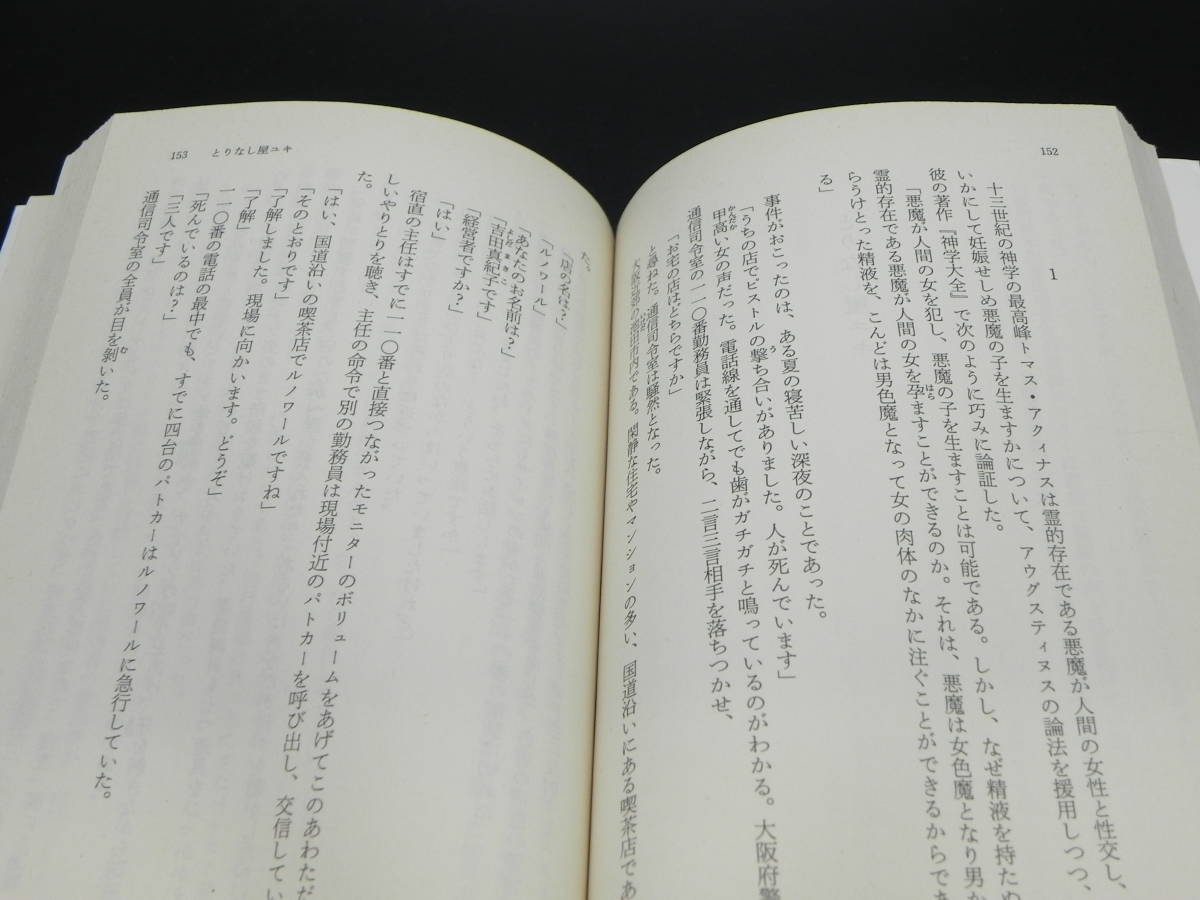 152
1
十三世紀の神学の最高峰トマス・アクィナスは霊的存在である悪魔が人間の女性と性交し、
いかにして妊娠せしめ悪魔の子を生ますかについて、アウグスティヌスの論法を援用しつつ、
彼の著作『神学大全』で次のように巧みに論証した。
「悪魔が人間の女を犯し、悪魔の子を生ますことは可能である。しかし、なぜ精液を持たぬ
霊的存在である悪魔が人間の女を孕ますことができるのか。それは、悪魔は女色魔となり男か
らうけとった精液を、こんどは男色魔となって女の肉体のなかに注ぐことができるからであ
る」
事件がおこったのは、ある夏の寝苦しい深夜のことであった。
「うちの店でピストルの撃ち合いがありました。人が死んでいます」
甲高い女の声だった。電話線を通してでも歯がガチガチと鳴っているのがわかる。大阪府警
通信司令室の一一〇番勤務員は緊張しながら、二言三言相手を落ちつかせ、
「お宅の店はどちらですか」
と尋ねた。通信司令室は騒然となった。
大阪北部の池田市内である。閑静な住宅やマンションの多い、国道沿いにある喫茶店であ
153 とりなし屋ユキ
た。
「店の名は?」
「ルノワール」
「あなたのお名前は?」
「吉田真紀子です」
「経営者ですか?」
「はい」
宿直の主任はすでに一一〇番と直接つながったモニターのボリュームをあげてこのあわただ
しいやりとりを聴き、主任の命令で別の勤務員は現場付近のパトカーを呼び出し、交信してい
た。
「はい、国道沿いの喫茶店でルノワールですね」
「そのとおりです」
「了解しました。現場に向かいます。どうぞ」
「了解」
一一〇番の電話の最中でも、すでに四台のパトカーはルノワールに急行していた。
「死んでいるのは?」
「三人です」
通信司令室の全員が目を剝いた。